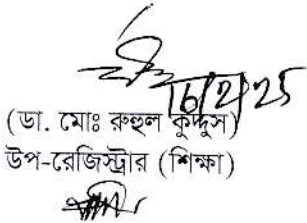 (ডা. মোঃ রুহুল কুদ্দুস)
উপ-রেজিস্ট্রার (শিক্ষা)